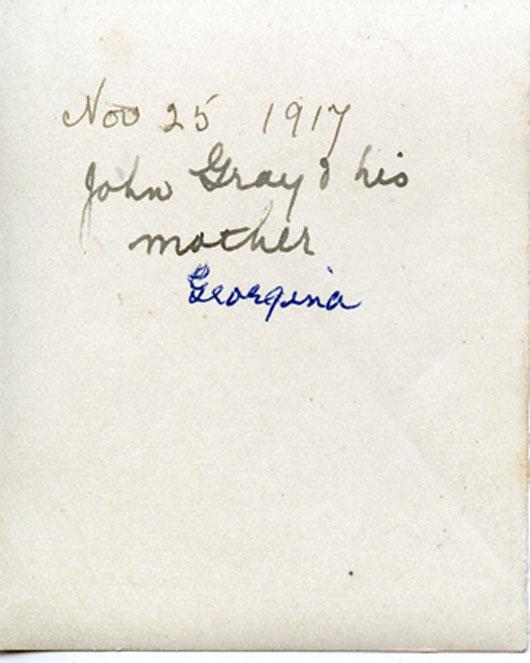 Nov 25 1917
John Gray & his
mother
Georgina